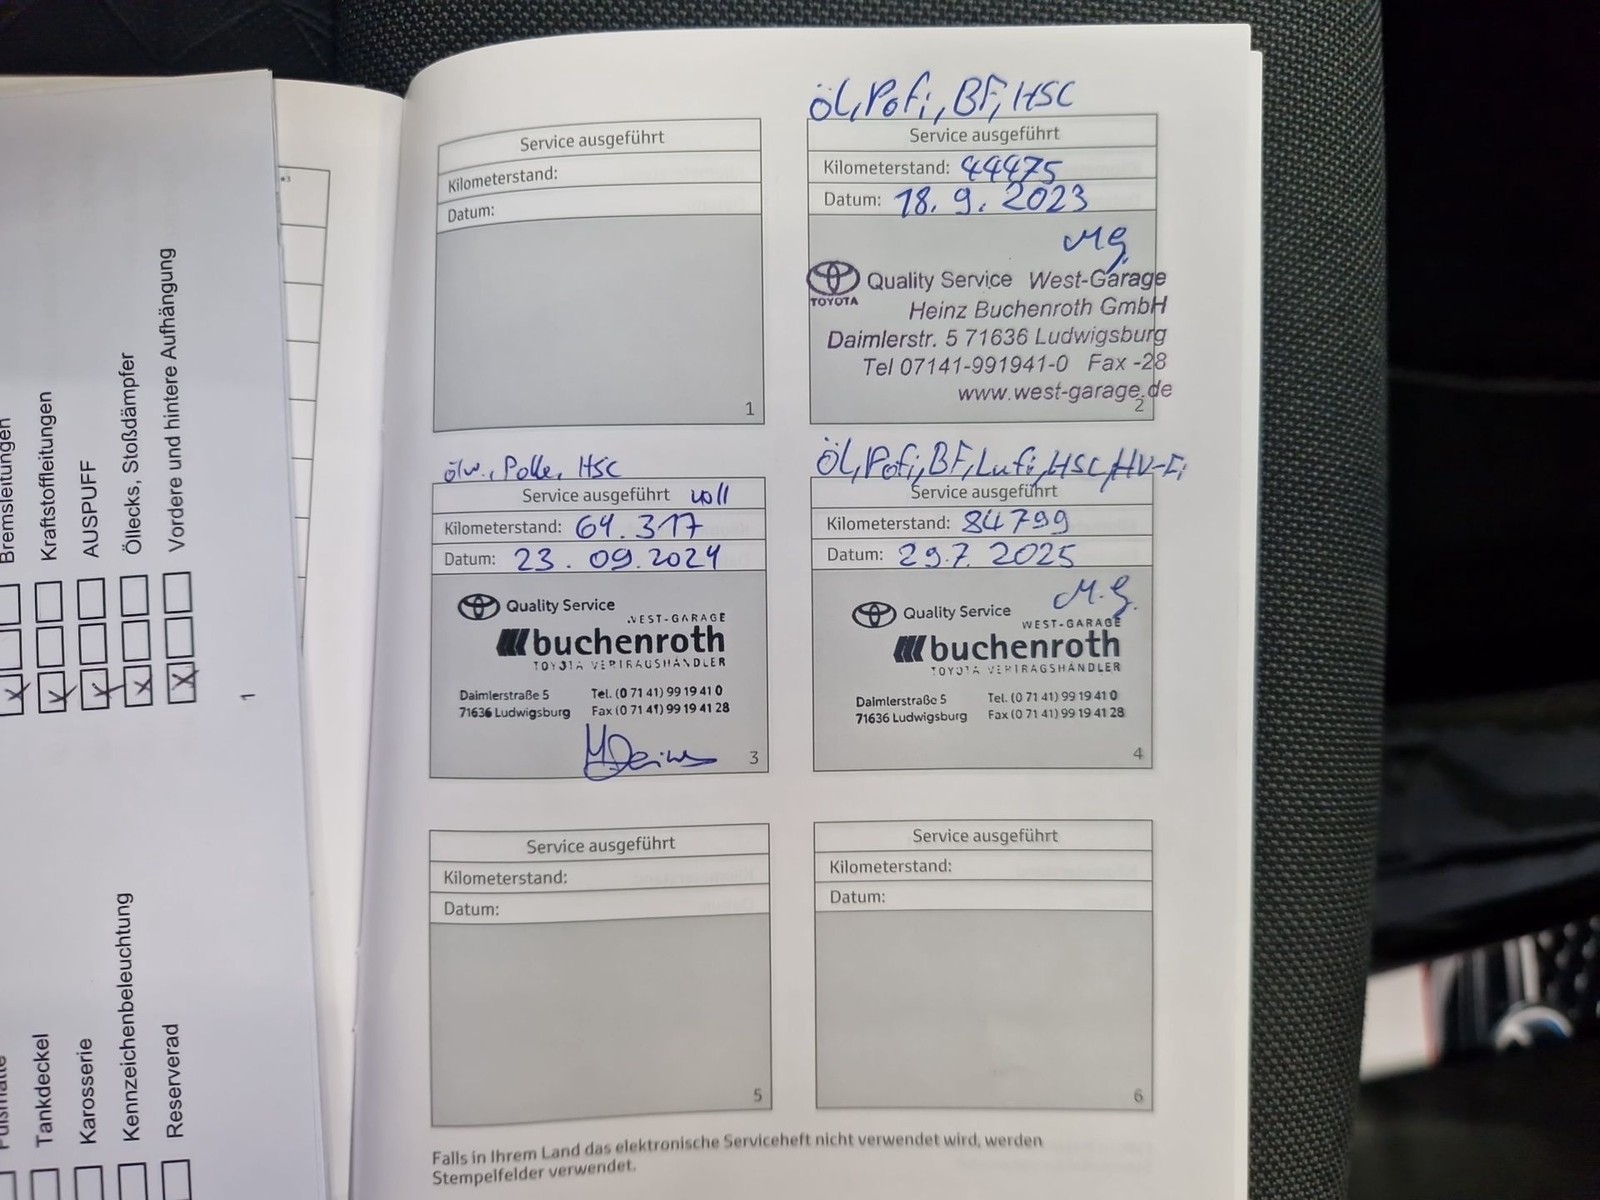 Bremsleitungen
Kraftstoffleitungen
AUSPUFF
Öllecks, Stoßdämpfer
Vordere und hintere Aufhängung
Tankdeckel
Karosserie
Kennzeichenbeleuchtung
Reserverad
1
Service ausgeführt
Kilometerstand:
Datum:
1
Öl, Pofi, BF, HSC
Service ausgeführt
Kilometerstand: 44475
Datum: 18. 9. 2023
M.G.
TOYOTA
Quality Service West-Garage
Heinz Buchenroth GmbH
Daimlerstr. 5 71636 Ludwigsburg
Tel 07141-991941-0 Fax -28
www.west-garage.de
2
ölw., Polle, HSC
Service ausgeführt voll
Kilometerstand: 64.317
Datum: 23. 09. 2024
Quality Service
WEST-GARAGE
buchenroth
TOYOTA VERTRAGSHÄNDLER
Daimlerstraße 5 Tel. (0 71 41) 99 19 41 0
71636 Ludwigsburg Fax (0 71 41) 99 19 41 28
3
Öl, Pofi, BF, Lufi, HSC, HV-Fi
Service ausgeführt
Kilometerstand: 84799
Datum: 29.7. 2025
M.G.
Quality Service
WEST-GARAGE
buchenroth
TOYOTA VERTRAGSHÄNDLER
Daimlerstraße 5 Tel. (0 71 41) 99 19 41 0
71636 Ludwigsburg Fax (0 71 41) 99 19 41 28
4
Service ausgeführt
Kilometerstand:
Datum:
5
Service ausgeführt
Kilometerstand:
Datum:
6
Falls in Ihrem Land das elektronische Serviceheft nicht verwendet wird, werden
Stempelfelder verwendet.